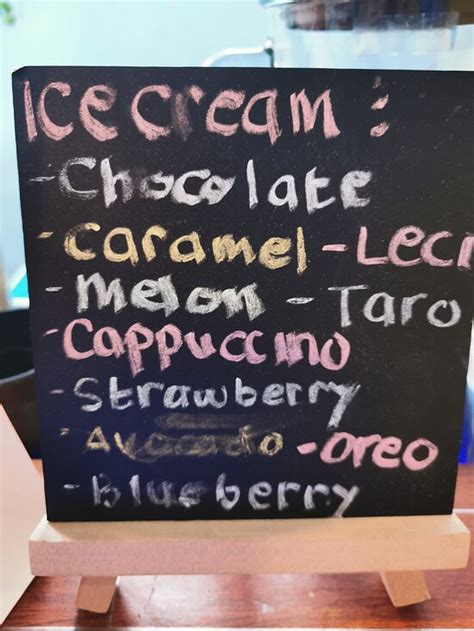 Ice cream :
- Chocolate
- Caramel - Leci
- Melon - Taro
- Cappuccino
- Strawberry
- Avocado - Oreo
- Blueberry